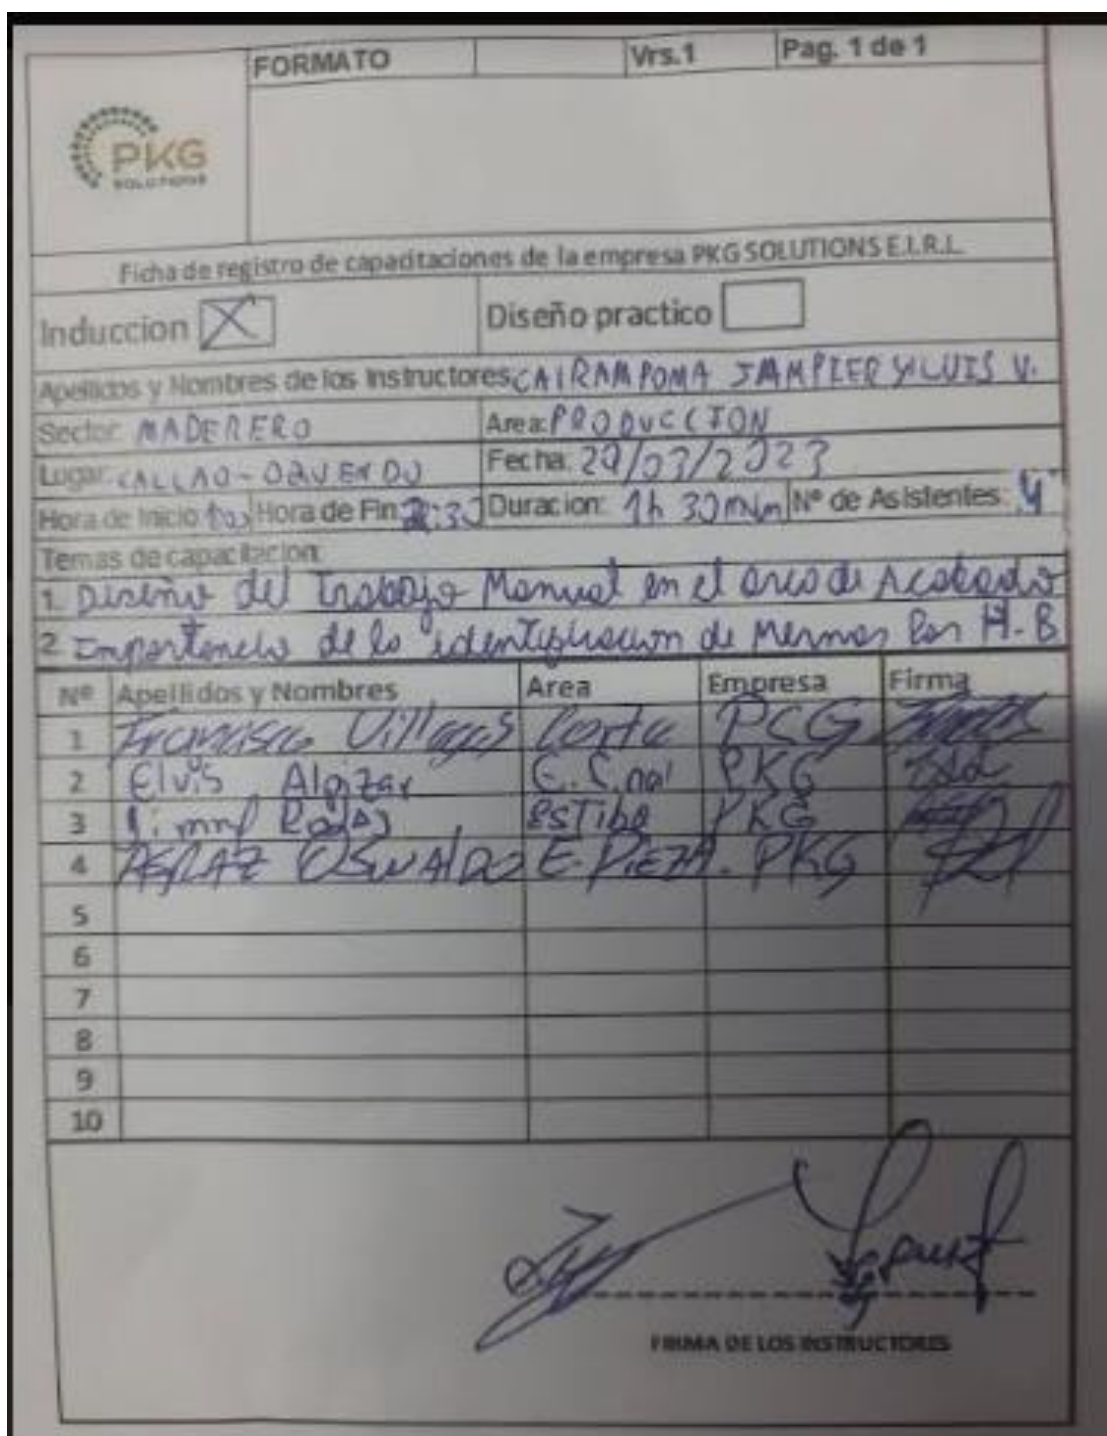 FORMATO Vrs.1 Pag. 1 de 1
PKG
SOLUTIONS
Ficha de registro de capacitaciones de la empresa PKG SOLUTIONS E.I.R.L.
Induccion X Diseño practico
Apellidos y Nombres de los Instructores: CAIRAMPOMA JAMPIER Y LUIS V.
Sector: MADERERO Area: PRODUCCION
Lugar: CALLAO - OQUENDO Fecha: 29/03/2023
Hora de Inicio Hora de Fin :30 Duracion: 1h 30min Nº de Asistentes: 4
Temas de capacitacion:
1. Diseño del Trabajo Manual en el area de Acabado
2 Importancia de la identificacion de Mermas Por H-B
Nº Apellidos y Nombres Area Empresa Firma
1 Francisco Villegas Corte PCG
2 Elvis PKG
3 Estiba PKG
4 OSWALDO E. PIEZA. PKG
5
6
7
8
9
10
FIRMA DE LOS INSTRUCTORES